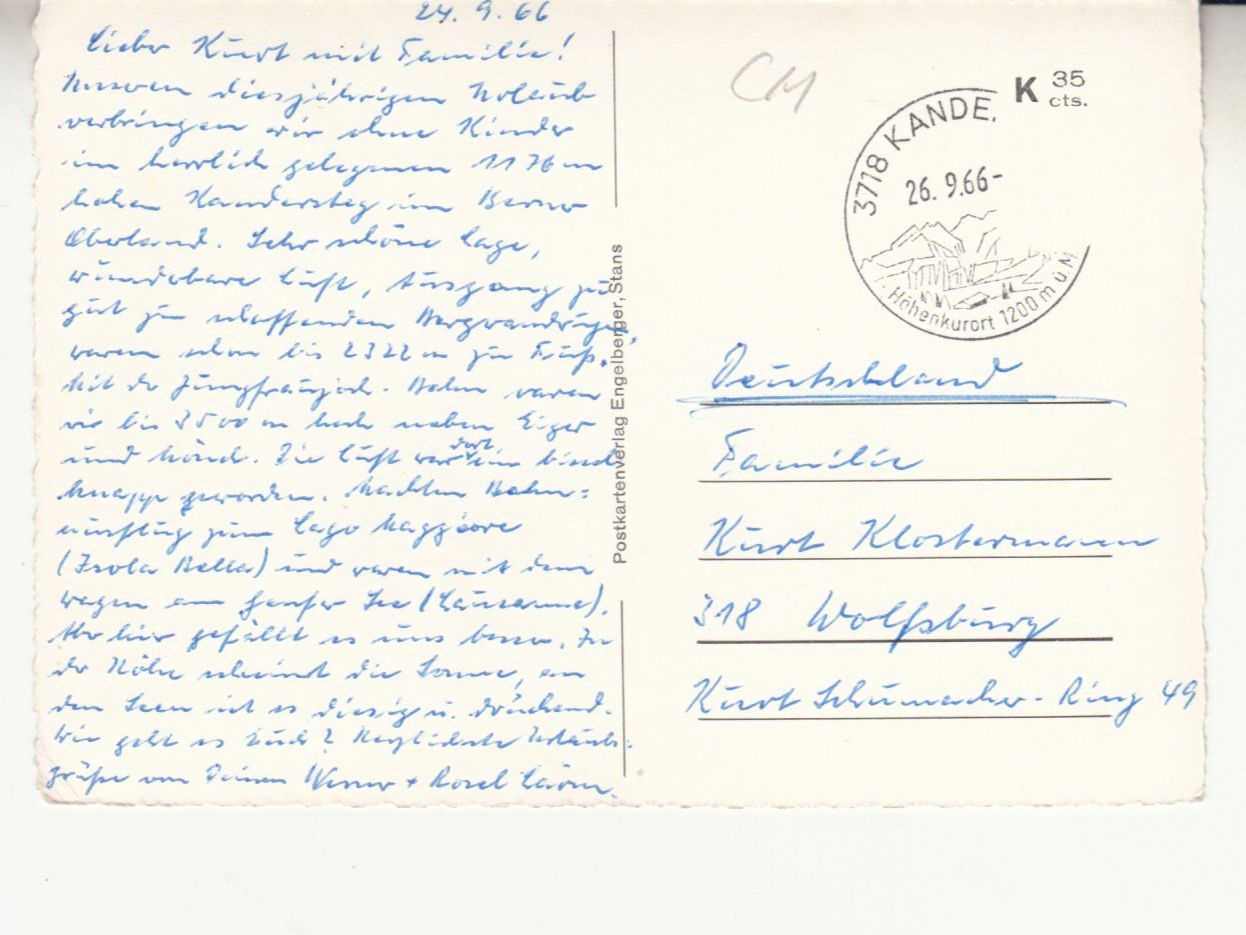 24. 9. 66
Lieber Kurt mit Familie!
Unseren diesjährigen Urlaub
verbringen wir ohne Kinder
im herrlich gelegenen 1176 m
hohen Kandersteg im Berner
Oberland. Sehr schöne Lage,
wunderbare Luft, Ausgang zu
gut zu schaffenden Bergwanderungen,
waren schon bis 2322 m zu Fuß.
Mit der Jungfraujoch-Bahn waren
wir bis 3500 m hoch neben Eiger
und Mönch. Die Luft war dort ein bissel
knapp geworden. Machten Bahn-
ausflug zum Lago Maggiore
(Isola Bella) und waren mit dem
Wagen am Genfer See (Lausanne).
Aber hier gefällt es uns besser. In
der Höhe scheint die Sonne, an
den Seen ist es diesig u. drückend.
Wie geht es Euch? Herzlichste Urlaubs-
grüße von Deinen Werner + Rosel
Postkartenverlag Engelberger, Stans
CH
K 35 cts.
3718 KANDE.
26. 9.66-
Höhenkurort 1200 m ü M
Deutschland
Familie
Kurt Klostermann
318 Wolfsburg
Kurt Schumacher-Ring 49